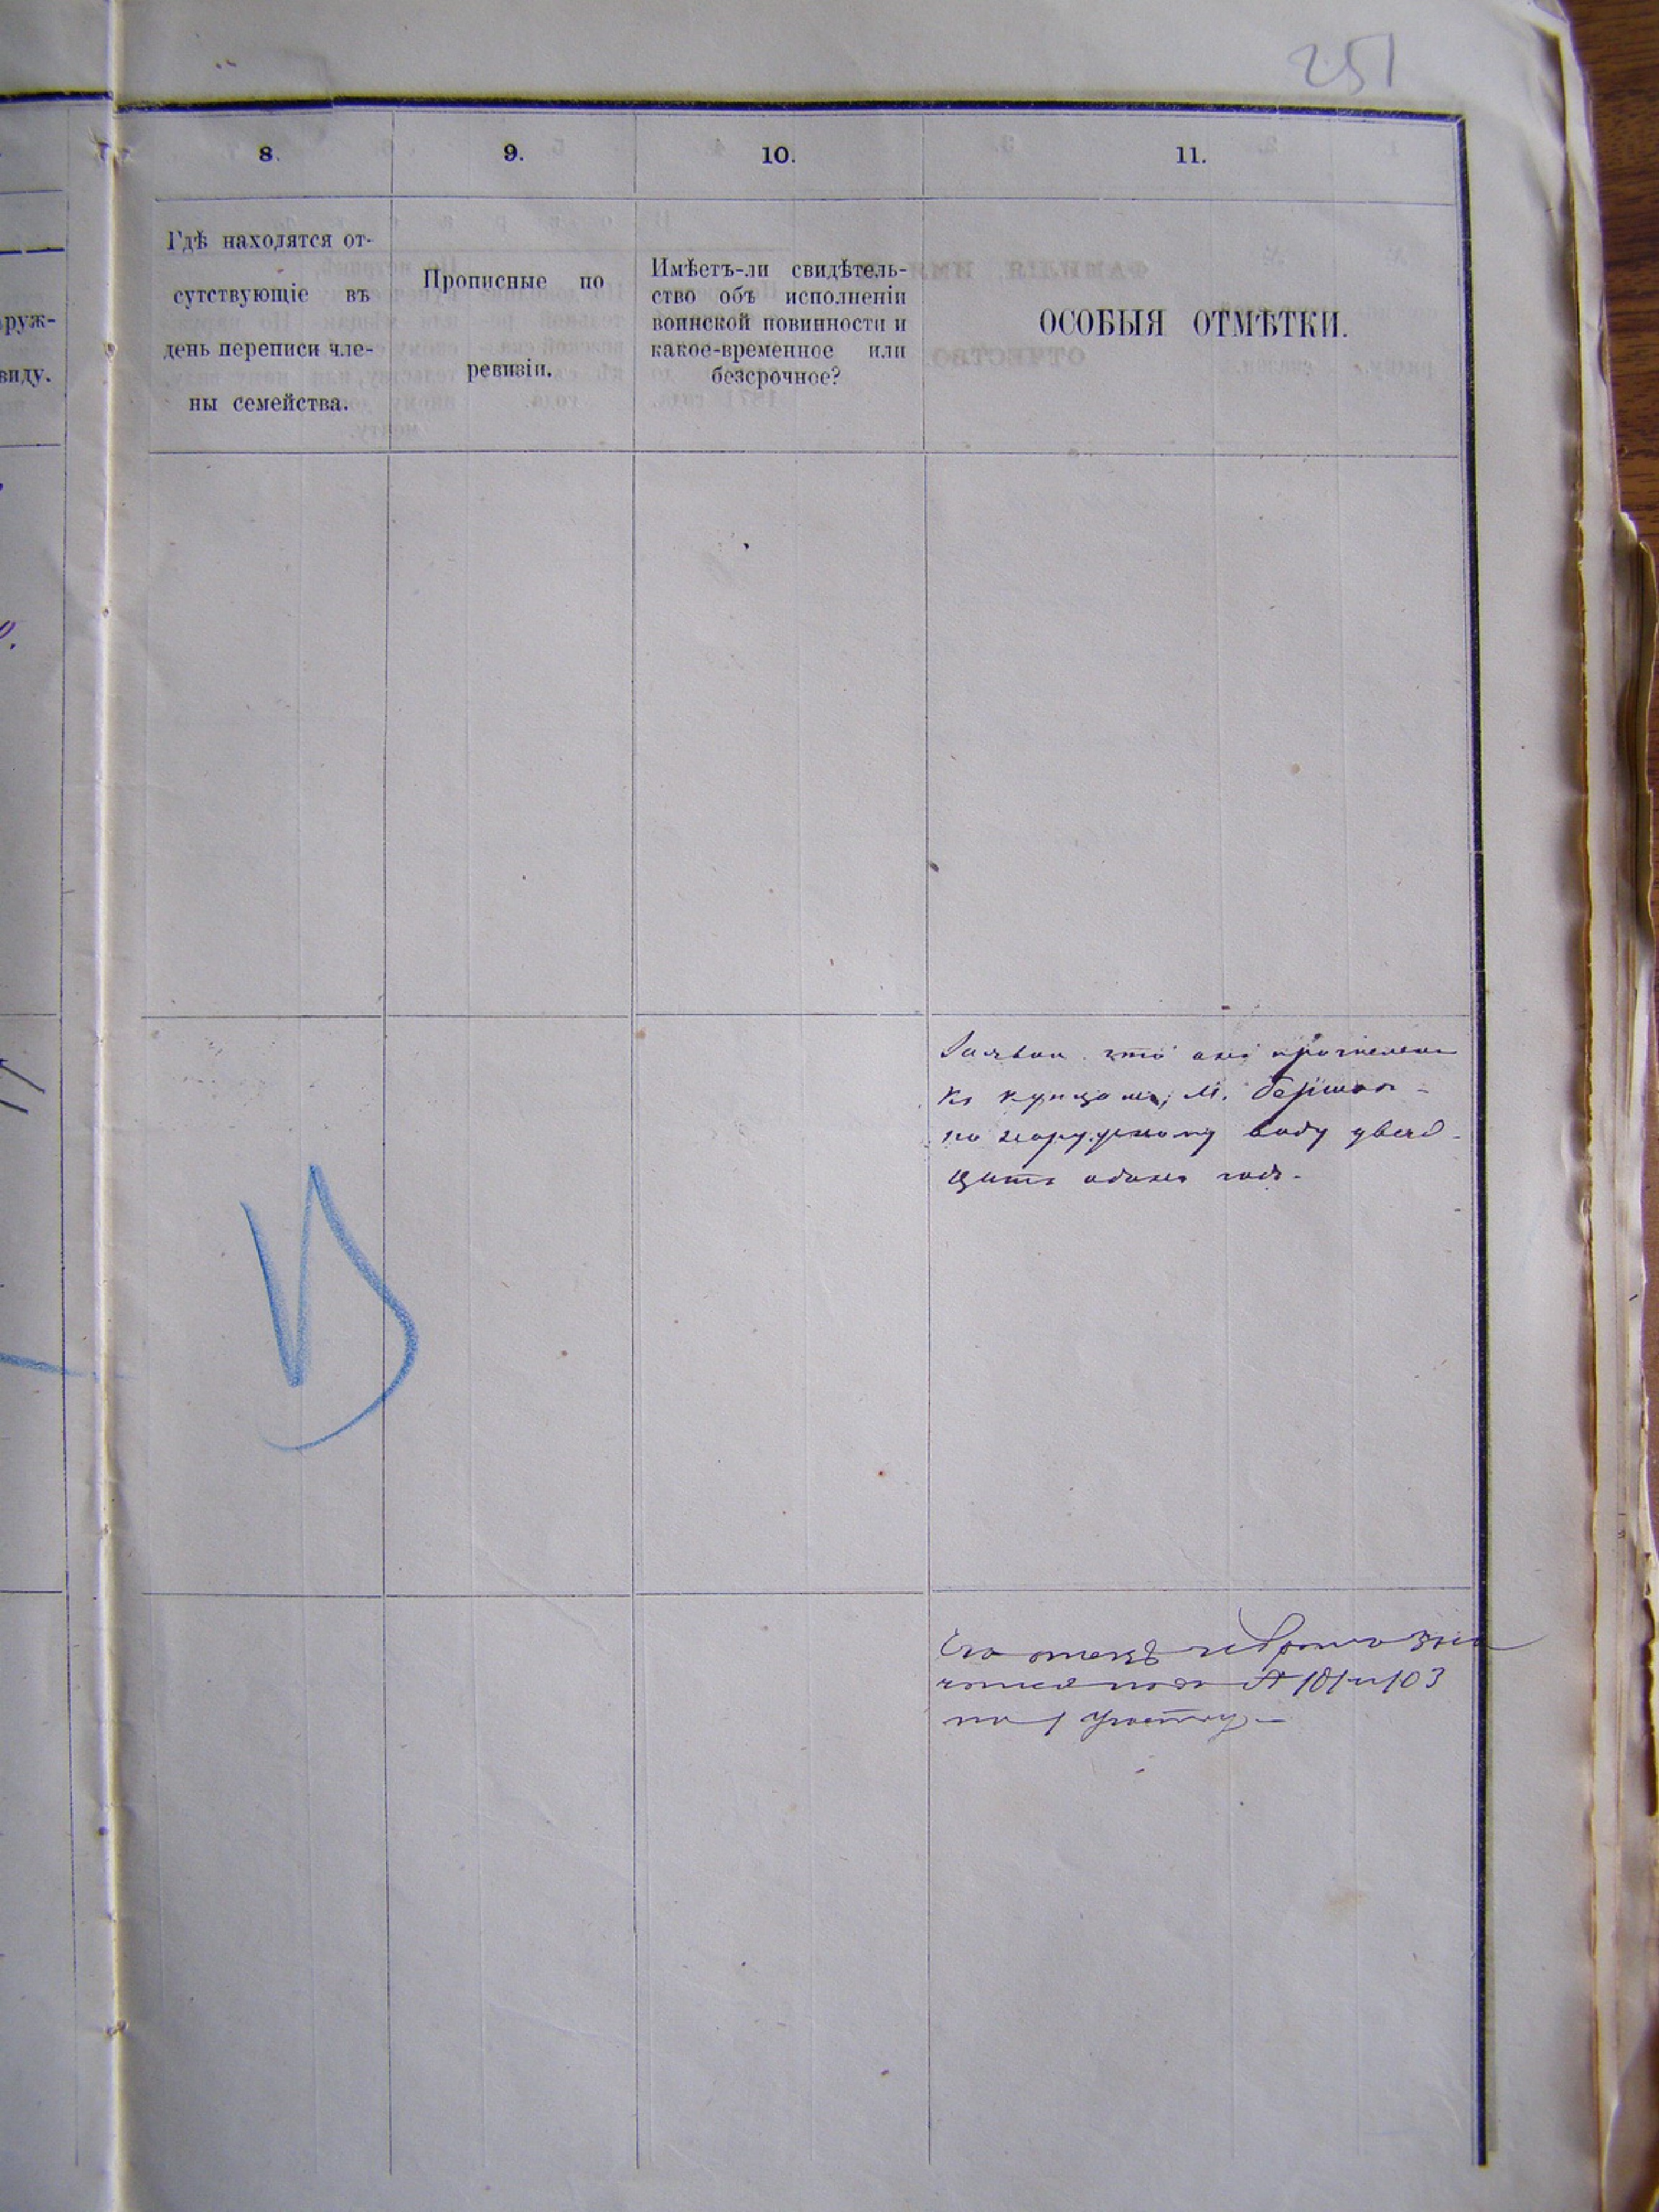 251
8.
9.
10.
11.
Гдѣ находятся от-
сутствующіе въ
день переписи чле-
ны семейства.
Прописные по
ревизіи.
Имѣетъ-ли свидѣтель-
ство объ исполненіи
воинской повинности и
какое-временное или
безсрочное?
ОСОБЫЯ ОТМѢТКИ.
руж-
виду.
что онъ причислен
къ купцамъ, М.
по наружному виду двад-
цать одинъ годъ.
Его отецъ и братъ зна
чатся подъ № 101 и 103
по 1 участку